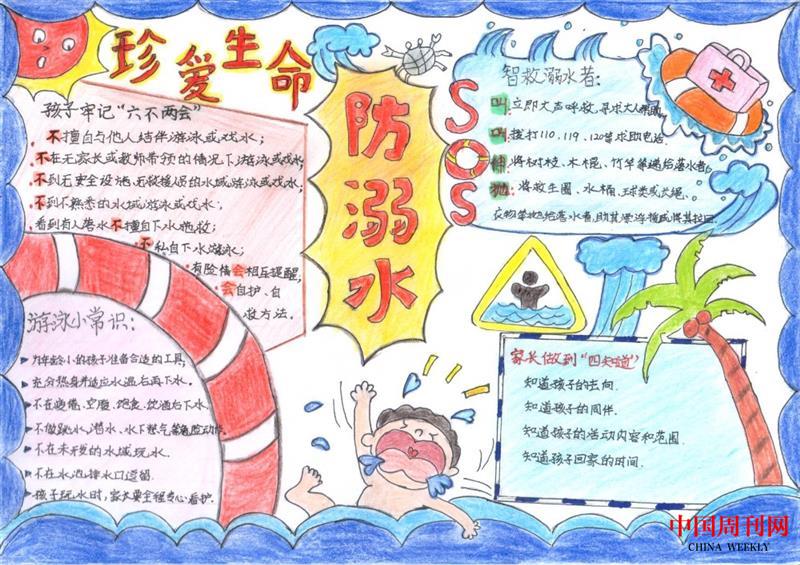 珍爱生命
防溺水
SOS
孩子牢记“六不两会”
不擅自与他人结伴游泳或戏水；
不在无家长或教师带领的情况下游泳或戏水；
不到无安全设施、无救援人员的水域游泳或戏水；
不到不熟悉的水域游泳或戏水；
看到有人落水不擅自下水施救；
不私自下水游泳；
有险情会相互提醒；
会自护、自
救方法。
智救溺水者：
叫：立即大声呼救，寻求大人帮助
叫：拨打110、119、120等求助电话.
伸：将树枝、木棍、竹竿等递给落水者
抛：将救生圈、水桶、球类或长绳、
衣物等抛给落水者，助其漂浮或将其拉回.
游泳小常识：
为年龄小的孩子准备合适的工具；
充分热身并适应水温后再下水。
不在疲倦、空腹、饱食、饮酒后下水.
不做跳水、潜水、水下憋气等危险动作.
不在未开发的水域玩水.
不在水池排水口逗留.
孩子玩水时，家长要全程专心看护.
家长做到“四知道”
知道孩子的去向.
知道孩子的同伴.
知道孩子的活动内容和范围.
知道孩子回家的时间.
中国周刊网
CHINA WEEKLY